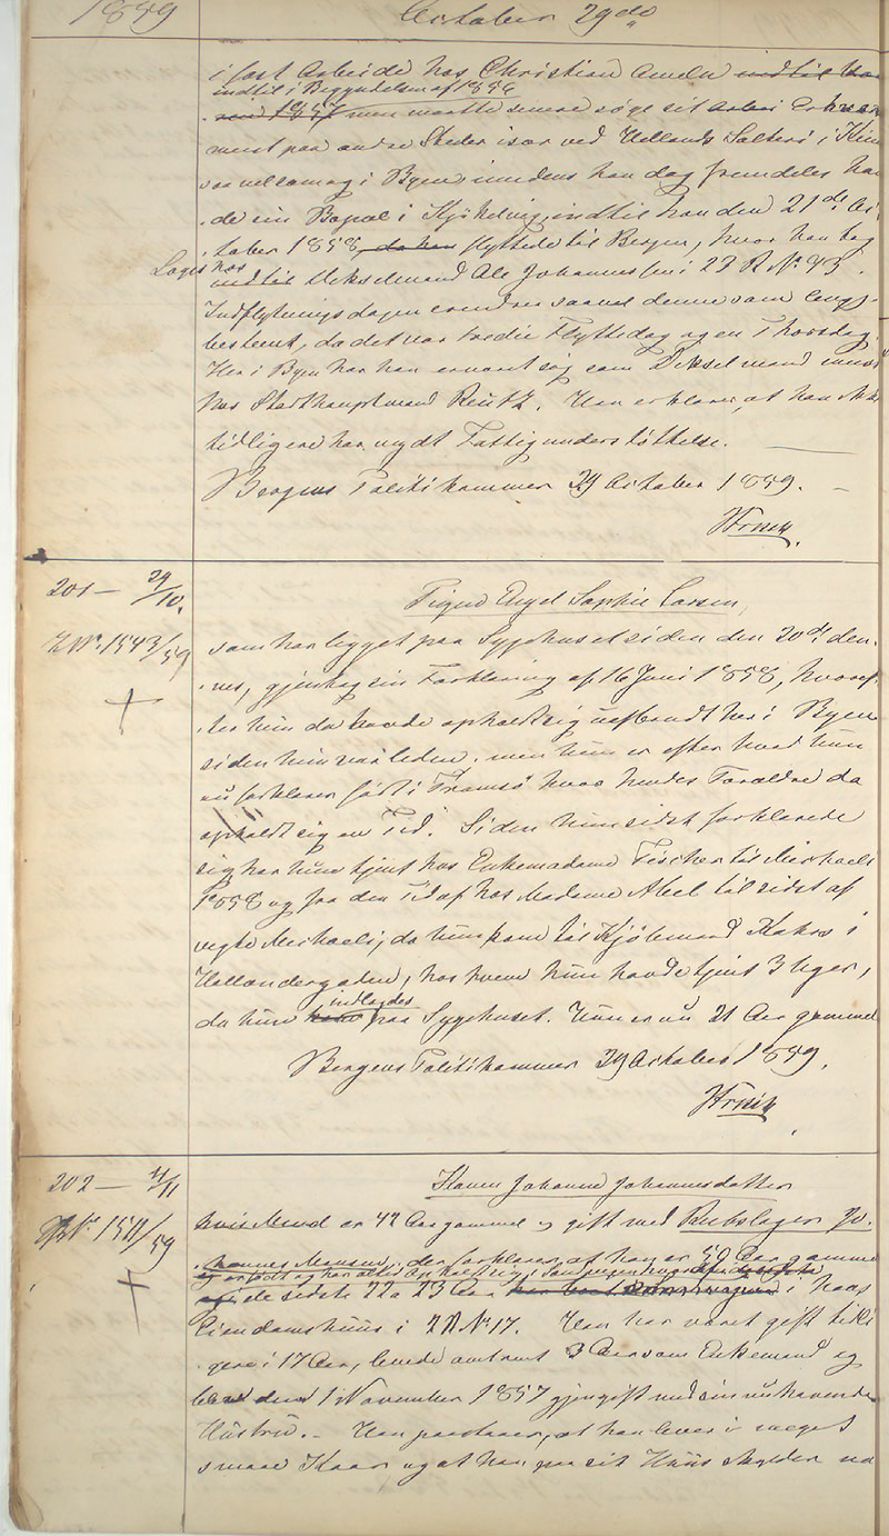 1859 October 29de
i fast Arbeide hos Christian Ameln indtil
indtil i Begyndelsen af 1856
1857 men maatte senere søge sit Erhverv
mest paa andre Steder især ved Hellands Salteri i
saavelsom og i Byen, imedens han dog fremdeles hav-
de sin Bopæl i indtil han den 21de Oc-
tober 1858, da han flyttede til Bergen, hvor han tog
Logis hos
indtil Vekselmand Ole Johannessen i 23 R. No. 43.
Indflytningsdagen erindrer saavel denne som
bestemt, da det var tredie Flyttedag og en Thorsdag.
Her i Byen har han ernæret sig som Vekselmand
hos Stadthauptmand Reutz. Han erklærer, at han ikke
tidligere har nydt Fattigunderstøttelse.
Bergens Politikammer 29 October 1859.
201 — 29/10.
Pigen Engel Sophie Larsen,
No. 1543/59
som har ligget paa Sygehuset siden den 20de den-
nes, gjentog sin Forklaring af 16 Juni 1858, hvoref-
ter hun da havde opholdt sig uafbrudt her i Byen
siden hun var liden, men hun er efter hvad hun
nu forklarer født i Tromsø hvor hendes Forældre da
opholdt sig en Tid. Siden hun sidst forklarede
sig har hun tjent hos Enkemadame Fischer til Michaeli
1858 og fra den Tid af hos Madame Abel til sidst af-
vigte Michaeli, da hun kom til Kjøbmand i
Hollændergaden, hos hvem hun havde tjent 3 Uger,
indlagdes
da hun kom paa Sygehuset. Hun er nu 21 Aar gammel
Bergens Politikammer 29 October 1859.
202 — /11
Karen Johanne Johannesdatter
No. 1511/59
hvis Mand er 42 Aar gammel og gift med Rebslager Jo-
hannes Monsen, der forklarer at han er 50 Aar gammel
og er født og har altid opholdt sig i
de sidste 22 a 23 Aar i hans
Eiendomshuus i 22 R. No. 17. Han har været gift tidli-
gere i 17 Aar, levede omtrent 3 Aar som Enkemand og
blev den 1 November 1857 gjengift med sin nuhavende
Hustru. - Han paastaar, at han lever i meget
smaae Kaar og at han paa sit Huus skylder